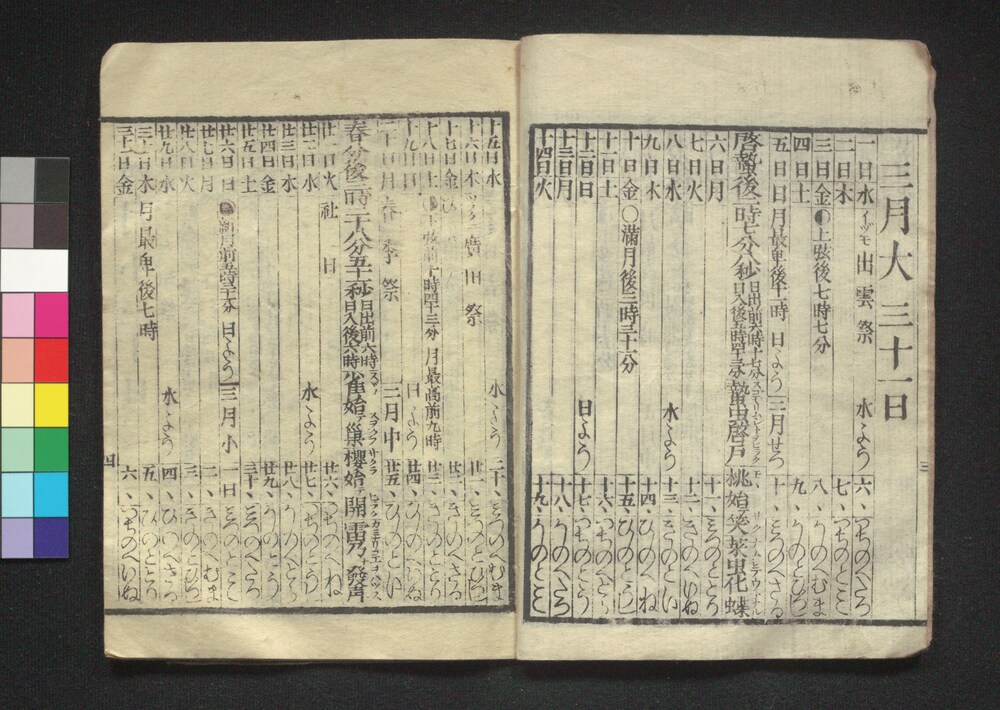 三月大 三十一日
一日 水 イヅモ 出雲祭 水よう 六、つちのへたつ
二日 木 七、つちのとのみ
三日 金 ◐上弦後七時七分 八、かのへむま
四日 土 九、かのとひつじ
五日 日 月最卑後十一時 日よう 二月せつ 十、みづのへさる
啓蟄後一時七分八秒 日出前六時十七分 日入後五時四十三分 蟄虫啓戸 桃始笑 菜虫化蝶
六日 月 十一、みづのととり
七日 火 十二、きのへいぬ
八日 水 水よう 十三、きのとのい
九日 木 十四、ひのへね
十日 金 ○滿月後三時三十二分 十五、ひのとうし
十一日 土 十六、つちのへとら
十二日 日 日よう 十七、つちのとう
十三日 月 十八、かのへたつ
十四日 火 十九、かのとのみ
十五日 水 水よう 二十、みづのへむま
十六日 木 廣田祭 廿一、みづのとひつじ
十七日 金 廿二、きのへさる
十八日 土 下弦前十時四十三分 月最高前九時 廿三、きのととり
十九日 日 日よう 廿四、ひのへいぬ
二十日 月 春季祭 二月中 廿五、ひのとのい
春分後二時二十八分五十二秒 日出前六時 日入後六時 雀始巢 櫻始開 雷乃發聲
廿一日 火 社日 廿六、つちのへね
廿二日 水 水よう 廿七、つちのとうし
廿三日 木 廿八、かのへとら
廿四日 金 廿九、かのとのう
廿五日 土 三十、みづのへたつ
廿六日 日 ●新月前五時二十分 日よう 三月小 一日 みづのとのみ
廿七日 月 二、きのへむま
廿八日 火 三、きのとひつじ
廿九日 水 水よう 四、ひのへさる
三十日 木 月最卑後七時 五、ひのととり
三十一日 金 六、つちのへいぬ
三
四